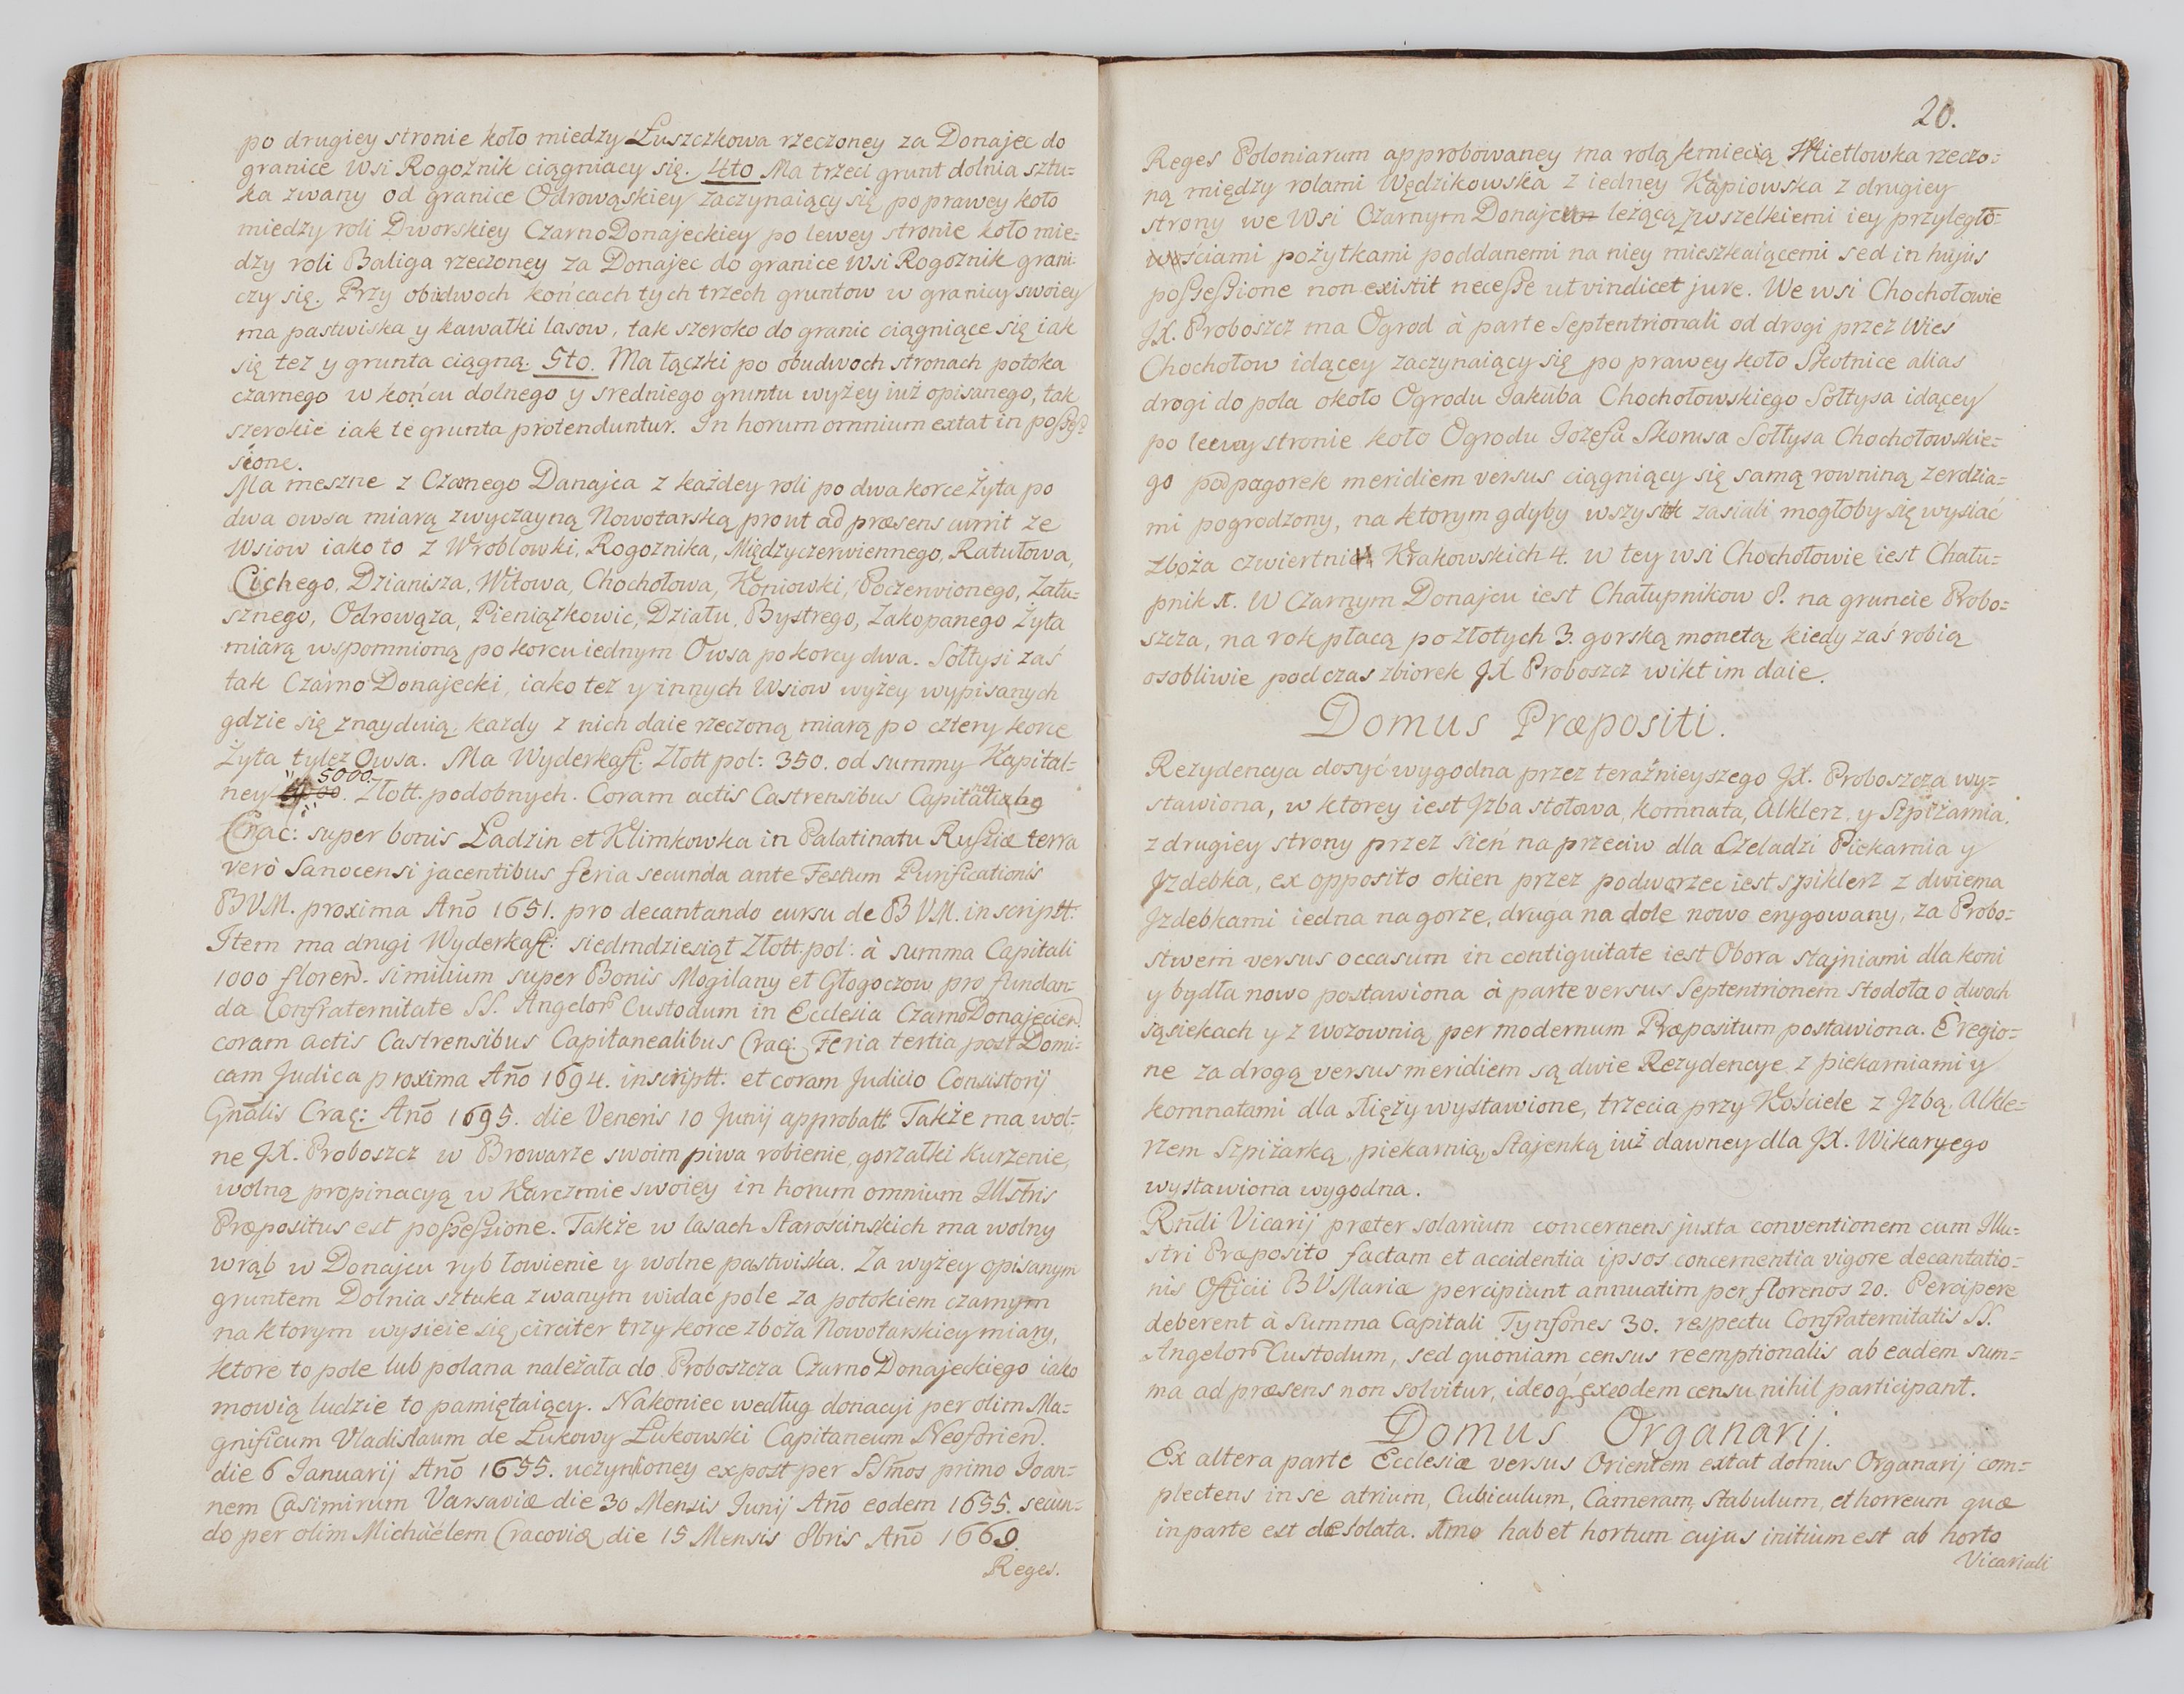 po drugiey stronie koło miedzy Łuszczkowa rzeczoney za Donajec do
granice Wsi Rogoźnik ciągniacy się. 4to Ma trzeci grunt dolnia sztu=
ka zwany od granice Odrowąskiey zaczynaiący się po prawey koło
miedzy roli Dworskiey CzarnoDonajeckiey po lewey stronie koło mie=
dzy roli Baliga rzeczoney za Donajec do granice Wsi Rogoznik grani=
czy się. Przy obudwoch końcach tych trzech gruntow w granicy swoiey
ma pastwiska y kawałki lasow, tak szeroko do granic ciągniące się iak
się tez y grunta ciągną. 5to. Ma łączki po obudwoch stronach potoka
czarnego w końcu dolnego y sredniego gruntu wyżey iuż opisanego, tak
szerokie iak te grunta protenduntur. In horum omnium extat in posses=
sione.
Ma meszne z Czarnego Danajca z każdey roli po dwa korce Żyta po
dwa owsa miarą zwyczayną Nowotarską prout ad præsens currit ze
Wsiow iako to z Wroblowki, Rogoznika, Międzyczerwiennego, Ratułowa,
Cichego, Dzianisza, Witowa, Chochołowa, Koniowki, Podczerwionego, Zału=
sznego, Odrowąża, Pieniążkowic, Działu, Bystrego, Zakopanego Żyta
miarą wspomnioną po korcu iednym Owsa po korcy dwa. Sołtysi zaś
tak Czarno Donajecki, iako też y innych Wsiow wyżey wypisanych
gdzie się znayduią, kazdy z nich daie rzeczoną miarą po cztery korce
Żyta tylez Owsa. Ma Wyderkaff: Złott pol: 350. od summy Kapital=
ney 5000. Złott. podobnych. Coram actis Castrensibus Capitanealibq
Crac: super bonis Ładzin et Klimkowka in Palatinatu Russiæ terra
verò Sanocensi jacentibus feria secunda ante Festum Purificationis
BVM. proxima Año 1651. pro decantando cursu de BVM. inscriptt:
Item ma drugi Wyderkaff: siedmdziesiąt Złott. pol: à summa Capitali
1000 floren. similium super Bonis Mogilany et Głogoczow pro fundan=
da Confraternitate SS. Angelor Custodum in Ecclesia CzarnoDonajecien.
coram actis Castrensibus Capitanealibus Crac: Feria tertia post Domi=
cam Judica proxima Año 1694. inscriptt. et coram Judicio Consistorij
Gñalis Crac: Año 1695. die Veneris 10 Junij approbatt: Także ma wol=
ne JX. Proboszcz w Browarze swoim piwa robienie, gorzałki kurzenie,
wolną propinacyą w Karczmie swoiey in horum omnium Illstris
Præpositus est possessione. Także w lasach Starościnskich ma wolny
wrąb w Donajcu ryb łowienie y wolne pastwiska. Za wyżey opisanym
gruntem Dolnia sztuka zwanym widać pole za potokiem czarnym
na ktorym wysieie się circiter trzy korce zboża Nowotarskiey miary,
ktore to pole lub polana należała do Proboszcza Czarno Donajeckiego iako
mowią ludzie to pamiętaiący. Nakoniec według donacyi per olim Ma=
gnificum Vladislaum de Łukowy Łukowski Capitaneum Neoforien.
die 6 Januarij Año 1655. uczynioney expost per SSmos primo Joan=
nem Casimirum Varsaviæ die 30 Mensis Junij Año eodem 1655. secun=
do per olim Michäelem Cracoviæ die 15 Mensis 8bris Año 1669.
Reges.
20.
Reges Poloniarum approbowaney ma rolą kmiecią Mietlowka rzeczo=
ną między rolami Wędzikowska z iedney Kapiowska z drugiey
strony we Wsi Czarnym Donajcu leżącą zwszelkiemi iey przyległo=
ściami pożytkami poddanemi na niey mieszkaiącemi sed in hujus
possessione non existit necesse ut vindicet jure. We wsi Chochołowie
JX. Proboszcz ma Ogrod à parte Septentrionali od drogi przez Wieś
Chochołow idącey zaczynaiący się po prawey koło Skotnice alias
drogi do pola około Ogrodu Jakuba Chochołowskiego Sołtysa idącey
po lewey stronie koło Ogrodu Jozefa Skorusa Sołtysa Chochołowskie=
go pod pagorek meridiem versus ciągniący się samą rowniną, zerdzia=
mi pogrodzony, na ktorym gdyby wszystek zasiali mogłoby się wysiać
zboża czwiertnie Krakowskich 4. w tey wsi Chochołowie iest Chału=
pnik 1. W Czarnym Donajcu iest Chałupnikow 8. na gruncie Probo=
szcza, na rok płacą po złotych 3. gorską monetą, kiedy zaś robią
osobliwie podczas zbiorek JX Proboszcz wikt im daie.
Domus Præpositi.
Rezydencya dosyć wygodna przez teraźnieyszego JX. Proboszcza wy=
stawiona, w ktorey iest Jzba stołowa, komnata, Alklerz, y Szpiżarnia,
z drugiey strony przez sień na przeciw dla Czeladzi Piekarnia y
Jzdebka, ex opposito okien przez podworzec iest szpiklerz z dwiema
Jzdebkami iedna na gorze, druga na dole nowo erygowany, za Probo=
stwem versus occasum in contiguitate iest Obora stajniami dla koni
y bydła nowo postawiona à parte versus Septentrionem stodoła o dwoch
sąsiekach y z wozownią per modernum Præpositum postawiona. E regio=
ne za drogą versus meridiem są dwie Rezydencye z piekarniami y
komnatami dla Xięży wystawione, trzecia przy Kościele z Jzbą, Alkie=
rzem Szpiżarką, piekarnią, Stajenką iuż dawney dla JX. Wikaryego
wystawiona wygodna.
Rñdi Vicarij præter solarium concernens juxta conventionem cum Illu=
stri Præposito factam et accidentia ipsos concernentia vigore decantatio=
nis Officii BVMariæ percipiunt annuatim per florenos 20. Percipere
deberent à Summa Capitali Tynfones 30. respectu Confraternitatis SS.
Angelor Custodum, sed quoniam census reemptionalis ab eadem sum=
ma ad præsens non solvitur, ideoq exeodem censu nihil participant.
Domus Organarij.
Ex altera parte Ecclesiæ versus Orientem extat domus Organarij com=
plectens in se atrium, Cubiculum, Cameram, Stabulum, et horreum quæ
in parte est desolata. 1mo habet hortum cujus initium est ab horto
Vicariali